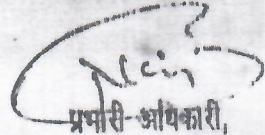 प्रभारी-अधिकारी,